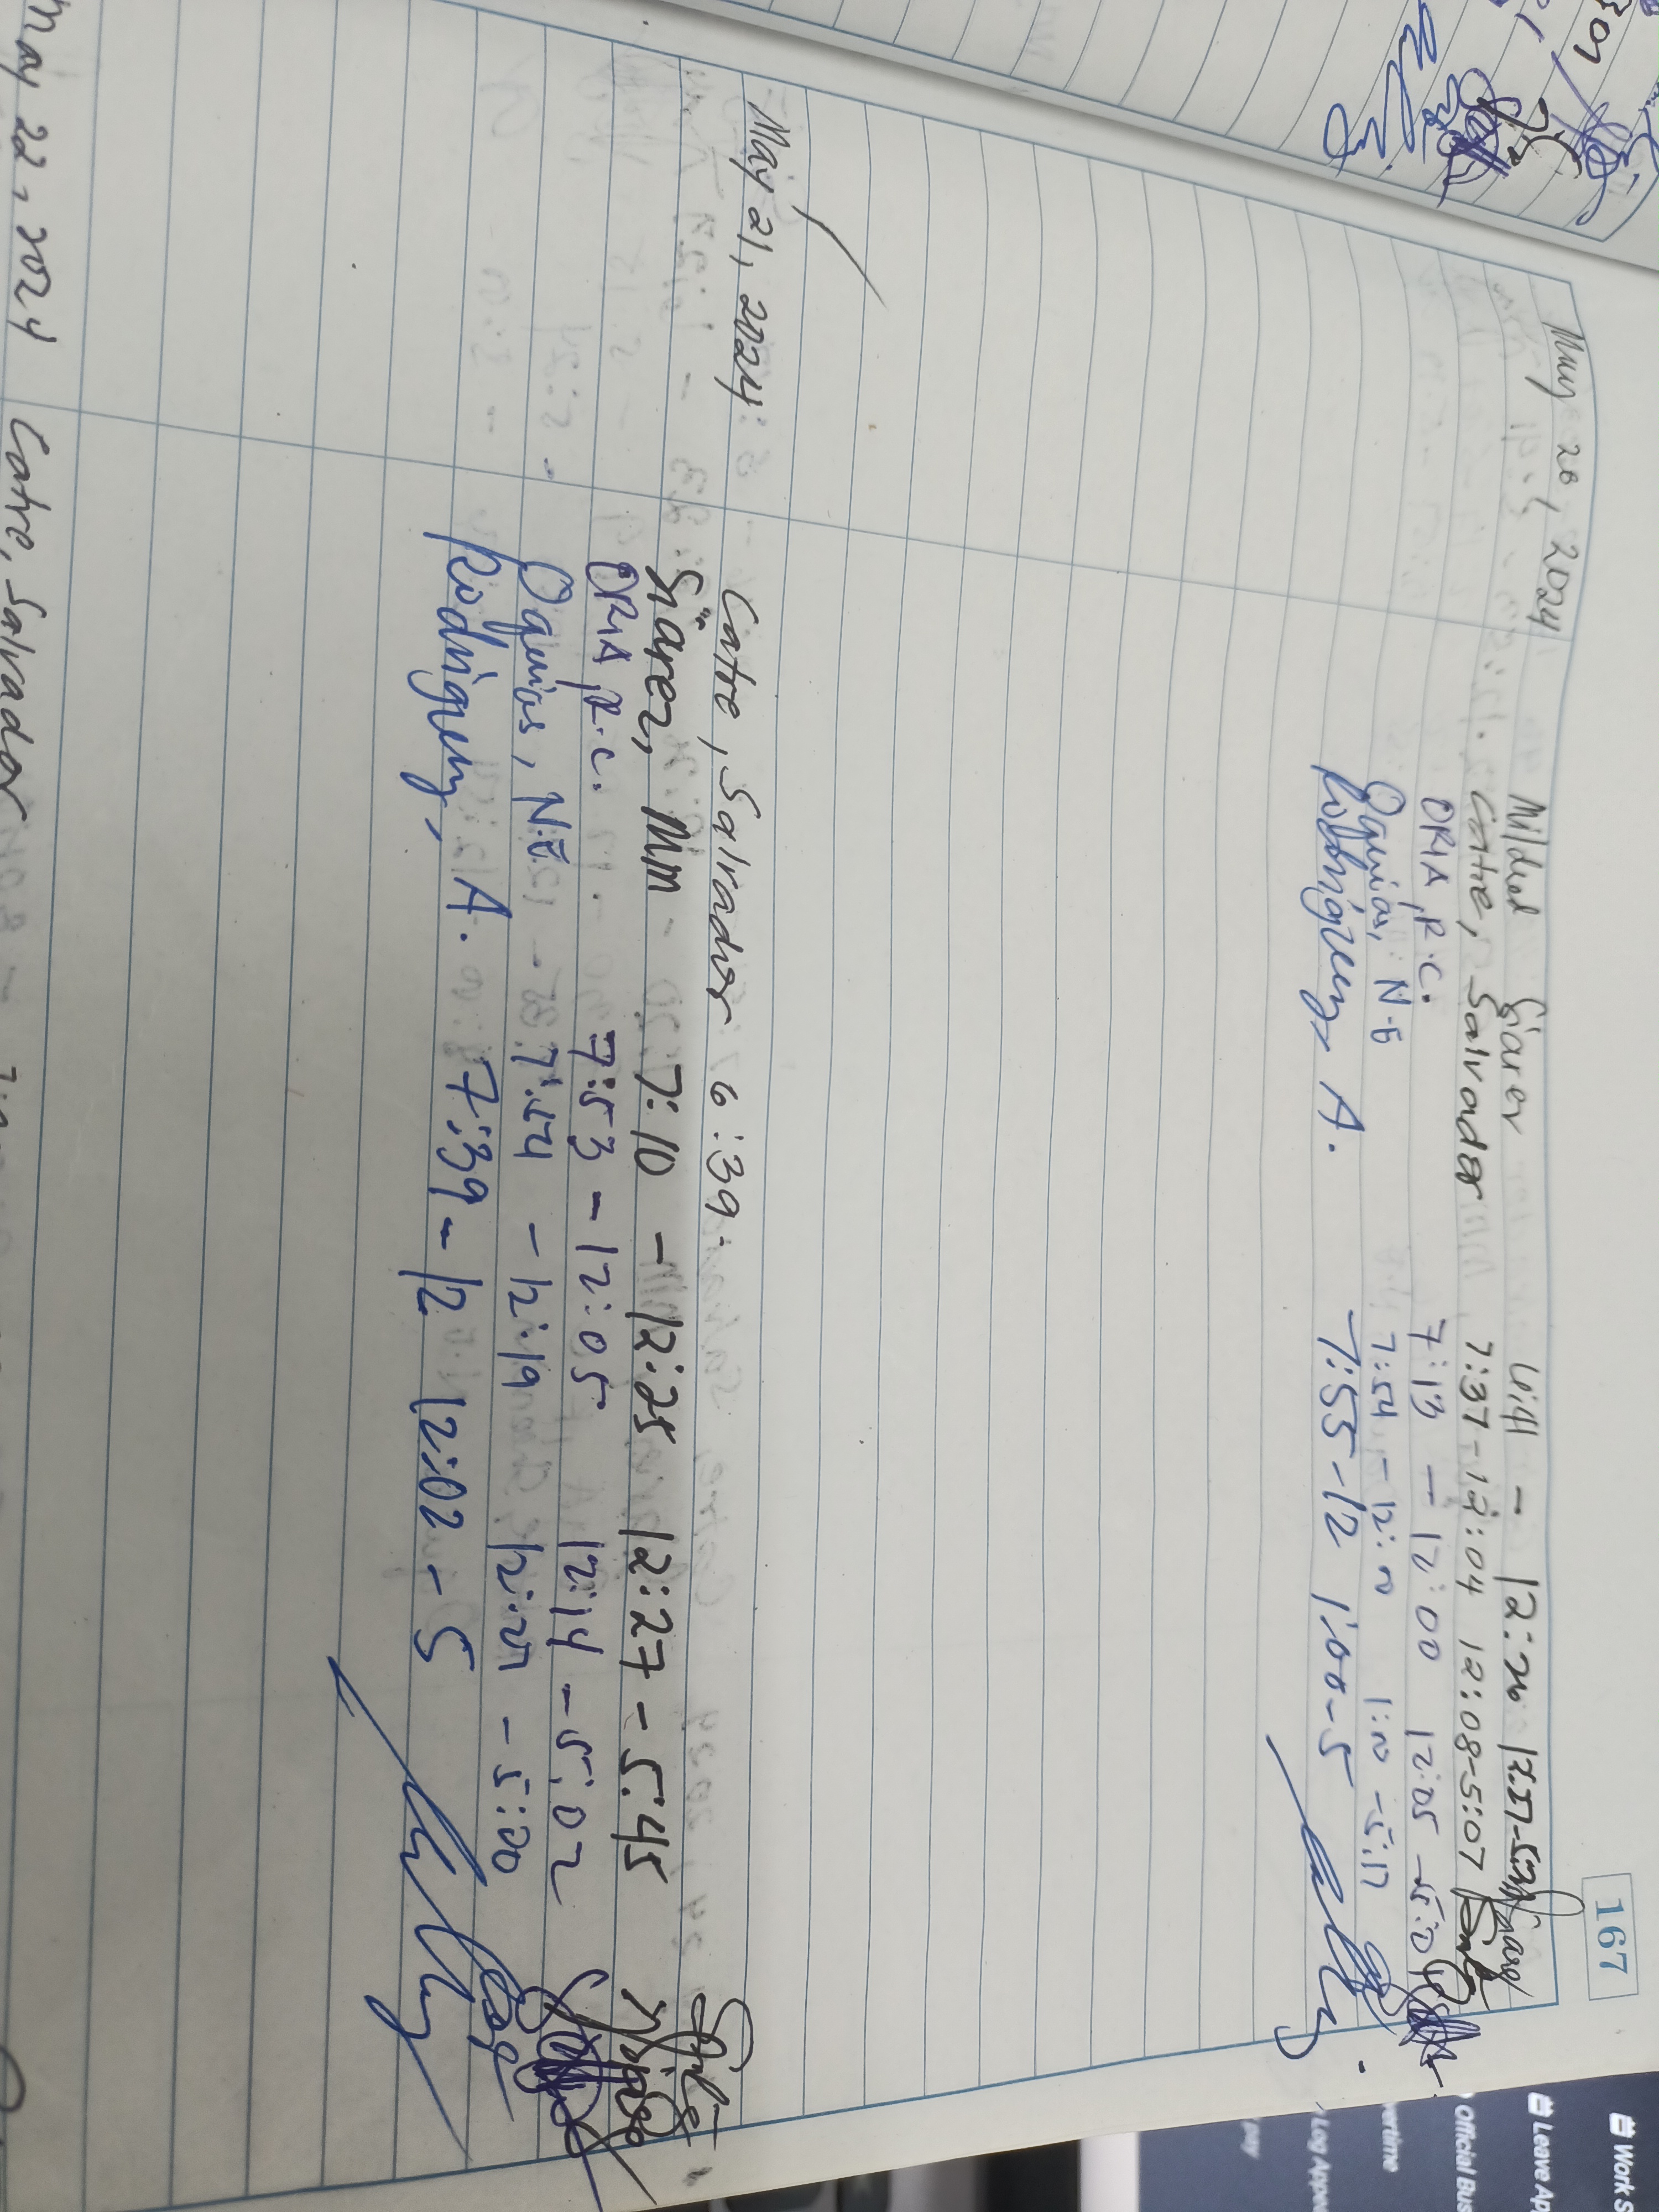 167
May 20, 2024
Mildred Giarez - 12:26
Catre, Salvador 7:37 - 12:04 12:08-5:07
ORIA, R.C. 7:13 - 12:00 12:05 - 5:01
Oquias, N.E 7:54 - 12:00 1:00 - 5:17
Rodriguez, A. 7:55-12 1:00-5
May 21, 2024
Catre, Salvador 6:39-
Siarez, MM 7:10 - 12:25 12:27 - 5:45
ORIA R.C. 7:53 - 12:05 12:14 - 5:02
Oquias, N.E 7:54 - 12:19 12:21 - 5:00
Rodriguez, A. 7:39 - 12 12:02 - 5
May 22, 2024 Catre, Salvador
Work S
Leave Ap
Official Bus
vertime
Log Approv
pay